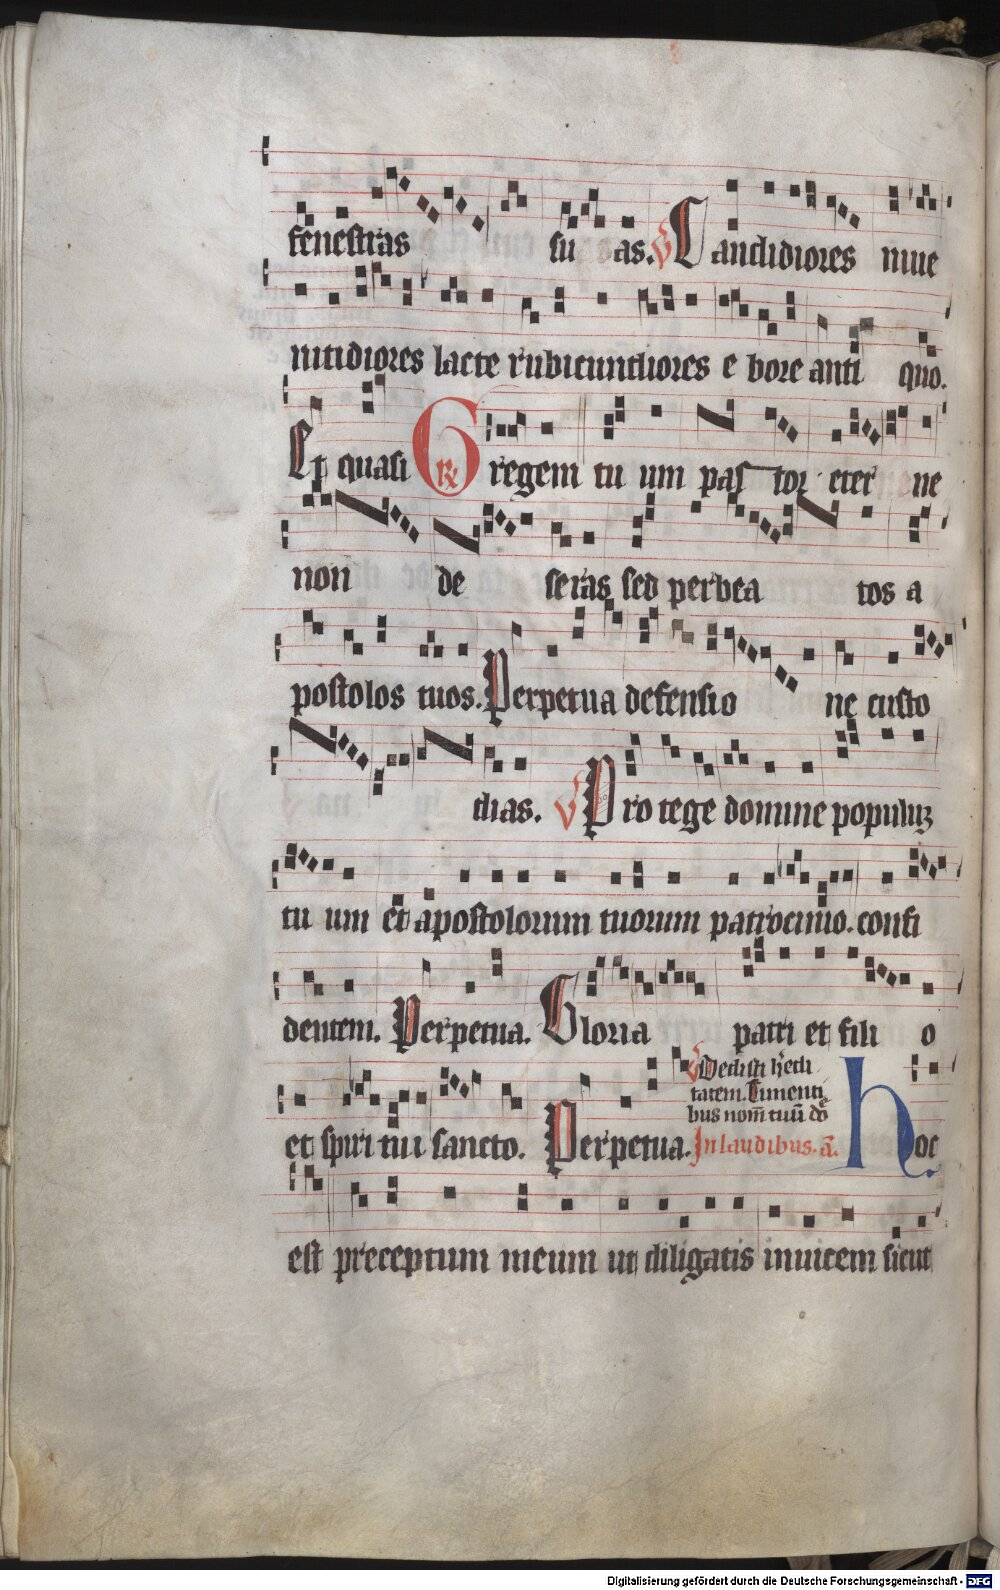 fenestras su as. V Candidiores niue
nitidiores lacte rubicundiores e bore anti quo.
Et quasi R Gregem tu um pas tor eter ne
non de seras sed per bea tos a
postolos tuos. Perpetua defensio ne custo
dias. V Pro tege domine populuʒ
tu um et apostolorum tuorum patrocinio. confi
dentem. Perpetua. Gloria patri et fili o
et spiri tui sancto. Perpetua.
V Dedisti h̄edi
tatem. Timenti
bus nom̄ tuū dn̄e
In laudibus. a̅. Hoc
est preceptum meum ut diligatis inuicem sicut
Digitalisierung gefördert durch die Deutsche Forschungsgemeinschaft - DFG